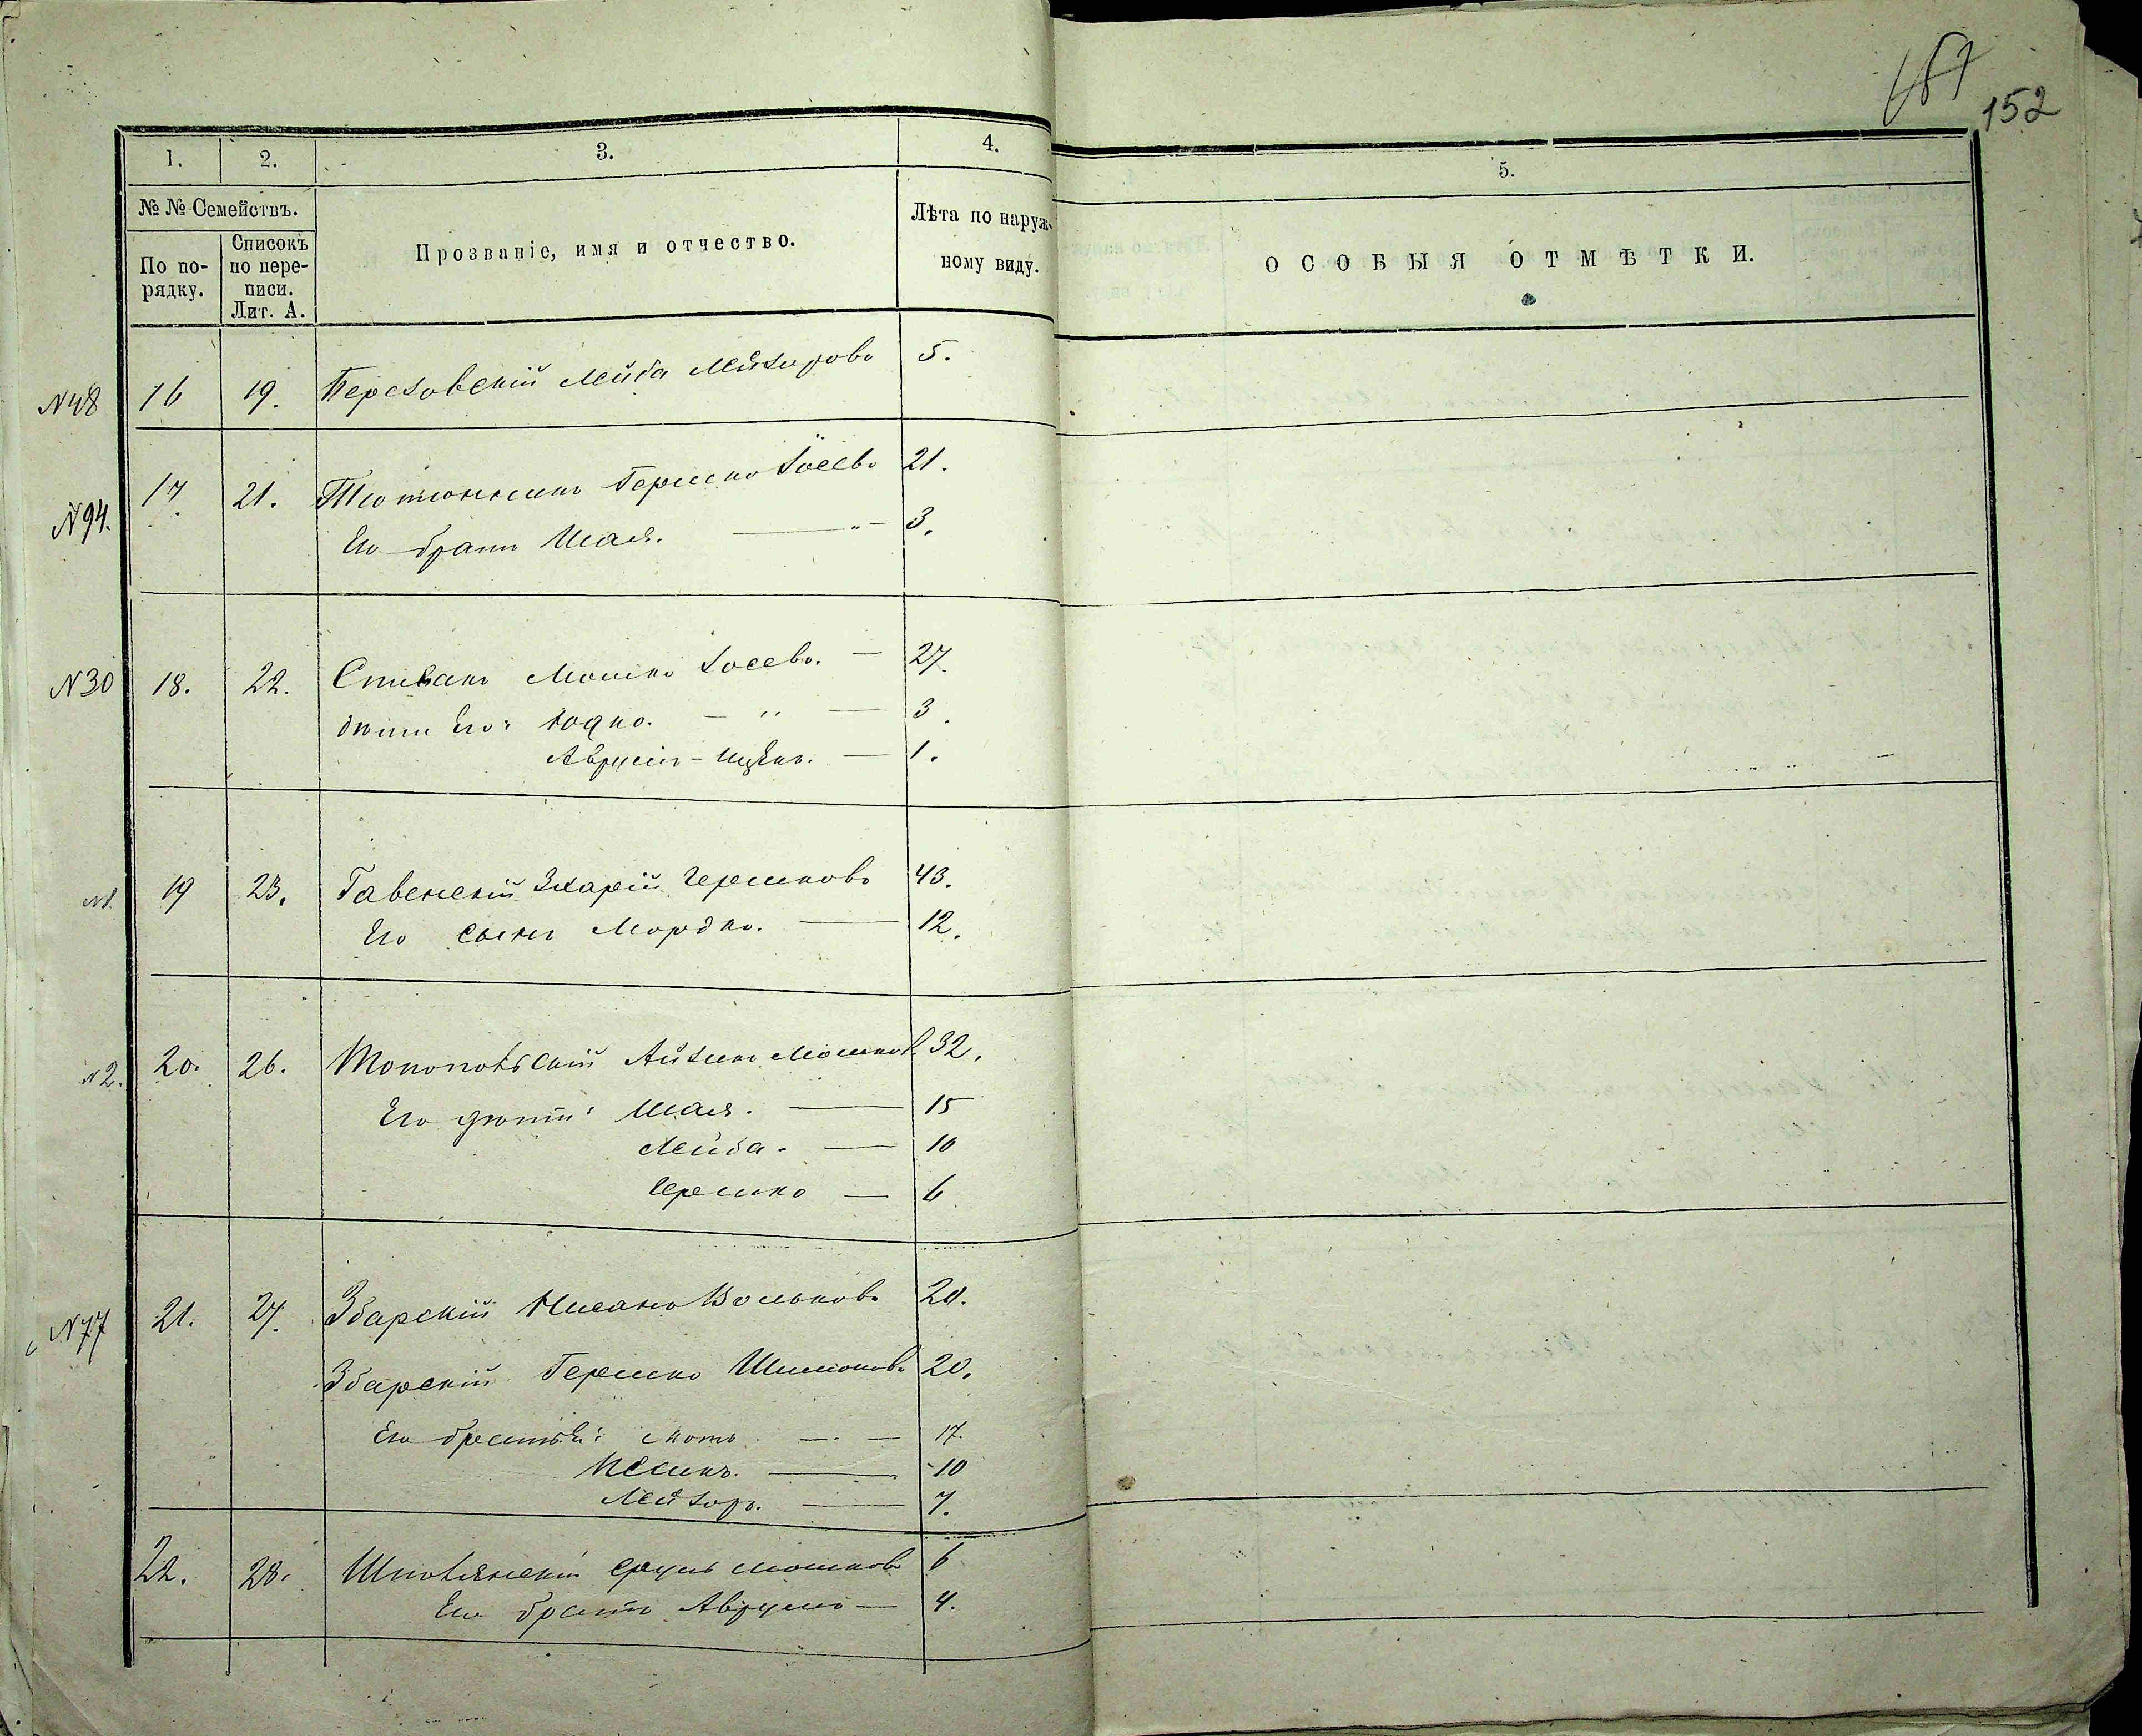 157
152
1. 2. 3. 4. 5.
№ № Семействъ.
По по-рядку.
Списокъ по пере-писи. Лит. А.
Прозваніе, имя и отчество.
Лѣта по наруж-ному виду.
ОСОБЫЯ ОТМѢТКИ.
N48 16 19. Березовскій Лейба Лейзеровъ 5.
N94. 17. 21. Тютюнникъ Гершко Іосевъ 21.
Его братъ Шая. — " — 3.
N30 18. 22. Спивакъ Мошко Іосевъ. — 27.
дѣти Его: Іодко. — " — 3.
Аврумъ-Ицекъ. — 1.
N1. 19 23. Гавенскій Зхарій Гершковъ 43.
Его сынъ Мордко. — 12.
N2. 20. 26. Мошков. 32.
Его дѣти: Шая. — 15
Лейба. — 10
Гершко — 6
N77 21. 27. Збарскій Нисанъ Вольковъ 20.
Збарскій Гершко Шимоновъ 20.
Его братья: Мотъ — . — 17.
— 10
Лейзоръ. — 7.
22. 28. Шполянскій Сруль Мошковъ 6
Его братъ Аврумъ — 4.